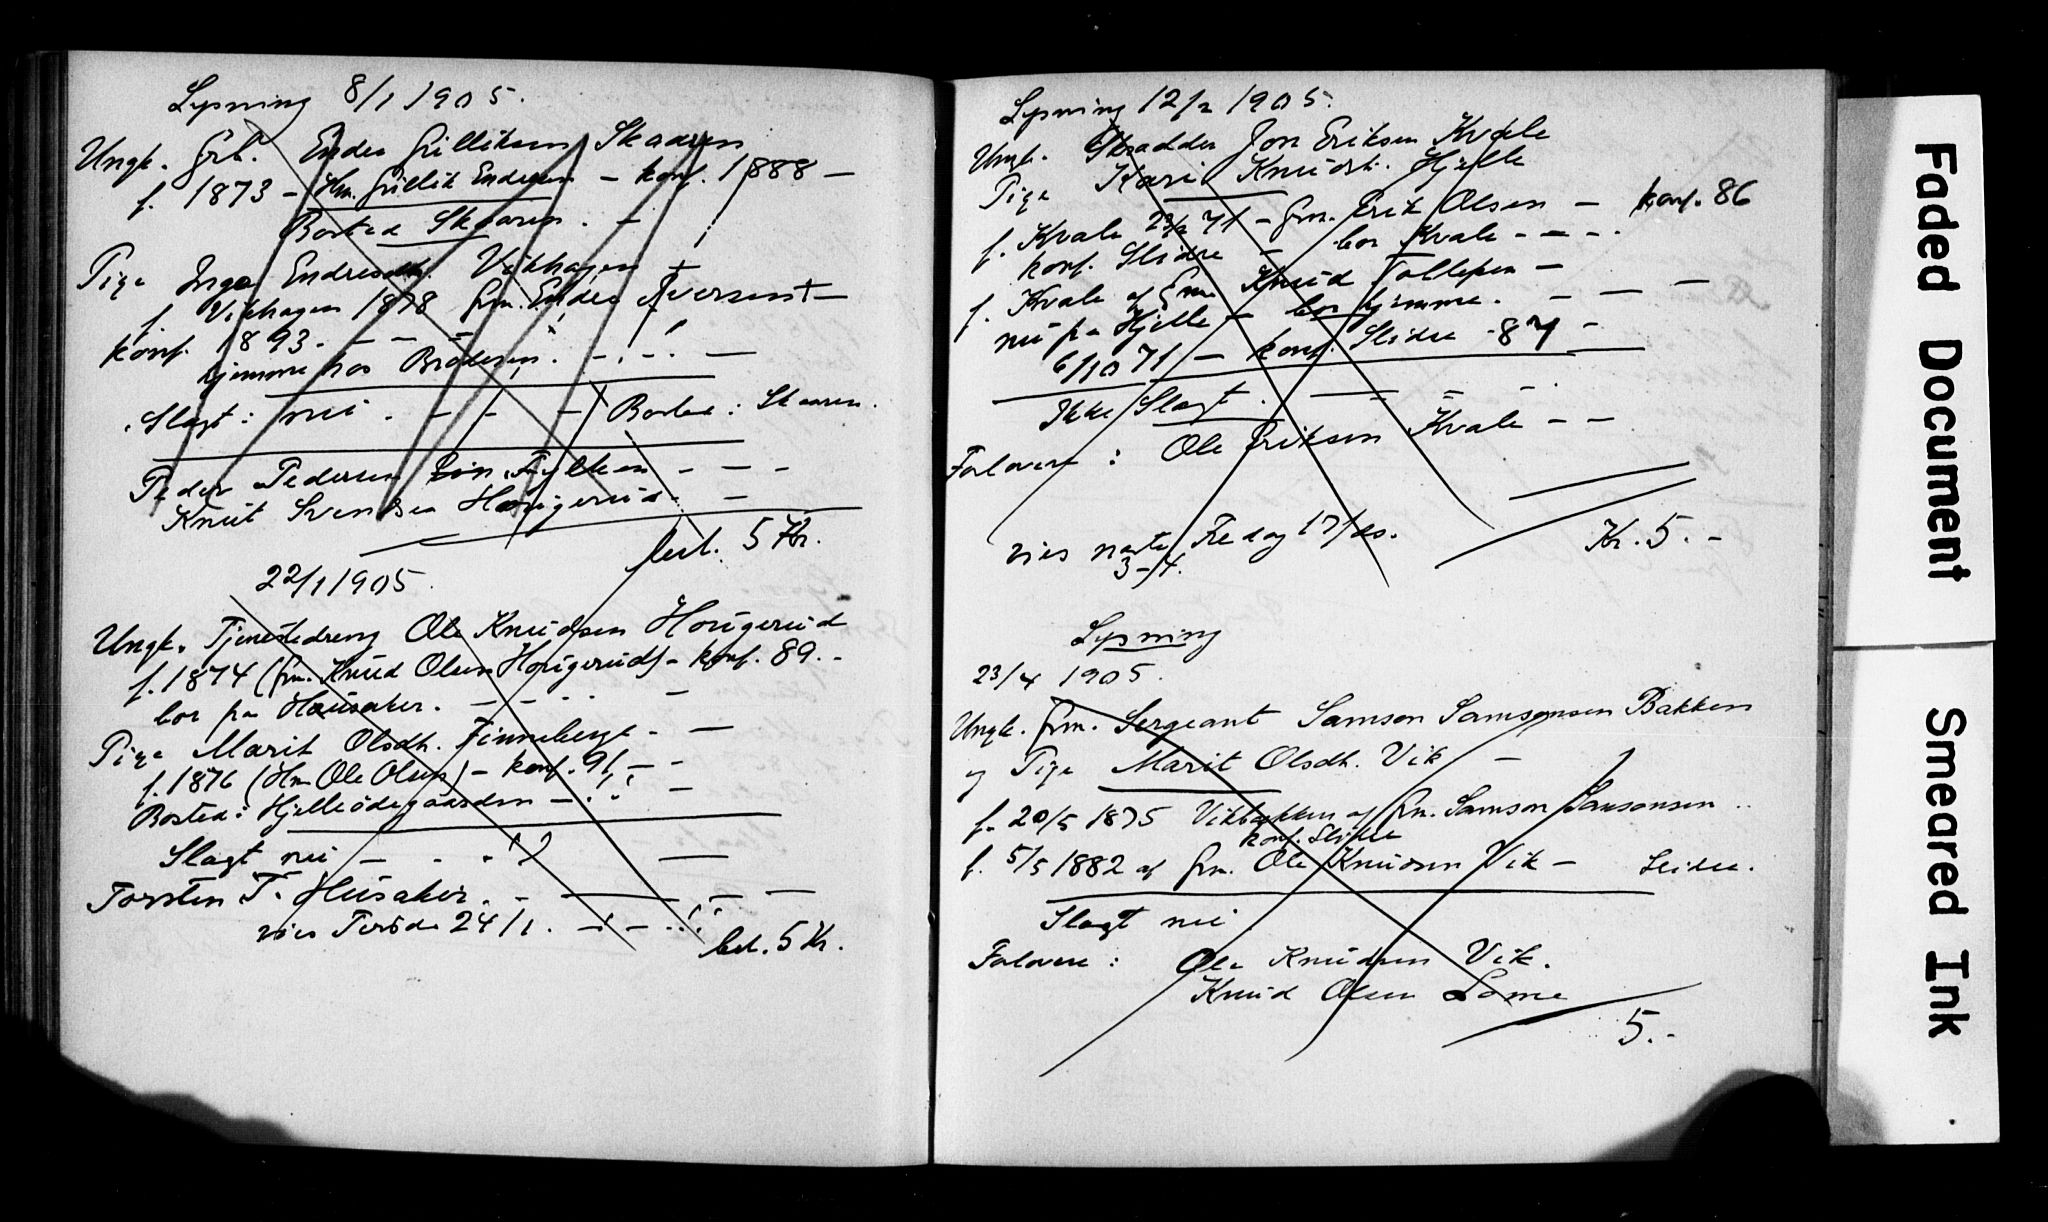 Lysning 8/1 1905.
Ungk. Grb. Endre Gulliksen Skaaren
f. 1873 - Hm. Gullik Endresen - konf. 1888 -
Bosted Skaaren. -
Pige Inga Endresdtr. Vikhagen
f. Vikhagen 1878 Grm. Endre Iversen +
konf. 1893. - -
hjemme hos Broderen.
Slagt: nei. - - - Bosted: Skaaren.
Peder Pedersen
Knut Svendsen Haugerud -
bet. 5 Kr.
22/1 1905.
Ungk. Tjenestedreng Ole Knudsen Haugerud
f. 1874 (Grm. Knud Olsen Haugerud) - konf. 89. -
bor pa Hausaker. - -
Pige Marit Olsdtr. Finneberget. -
f. 1876 (Hm Ole Olsen) - konf. 91 -
Bosted: Hjelleödegaarden -
Slagt nei -
Torsten T. Husaker. -
vies 24/1. - -
bet. 5 Kr.
Lysning 12/2 1905.
Ungk. Skrædder Jon Eriksen Kvale
Pige Kari Knudsdt. Hjelle
f. Kvale 23/2 71 - Grm. Erik Olsen - konf. 86
konf. Slidre - bor Kvale - - -
f. Kvale af Grm. Knud Tollefsen -
nu pa Hjelle - bor hjemme. - - -
6/10 71 - konf. Slidre - 87 -
Ikke Slagt. - -
Forlovere: Ole Eriksen Kvale - -
vies næste Fredag 17/ds.
3-4.
Kr. 5. -
Lysning
23/4 1905.
Ungk. Grm. Sergeant Samson Samsonsen Bakken
og Pige Marit Olsdtr. Vik -
f. 20/5 1875 Vikbakken af Grm. Samson Samsonsen
konf. Slidre
f. 5/5 1882 af Grm. Ole Knudsen Vik - Slidre.
Slagt nei
Forlovere: Ole Knudsen Vik.
Knud Olsen Lome
5.-
Faded Document
Smeared Ink